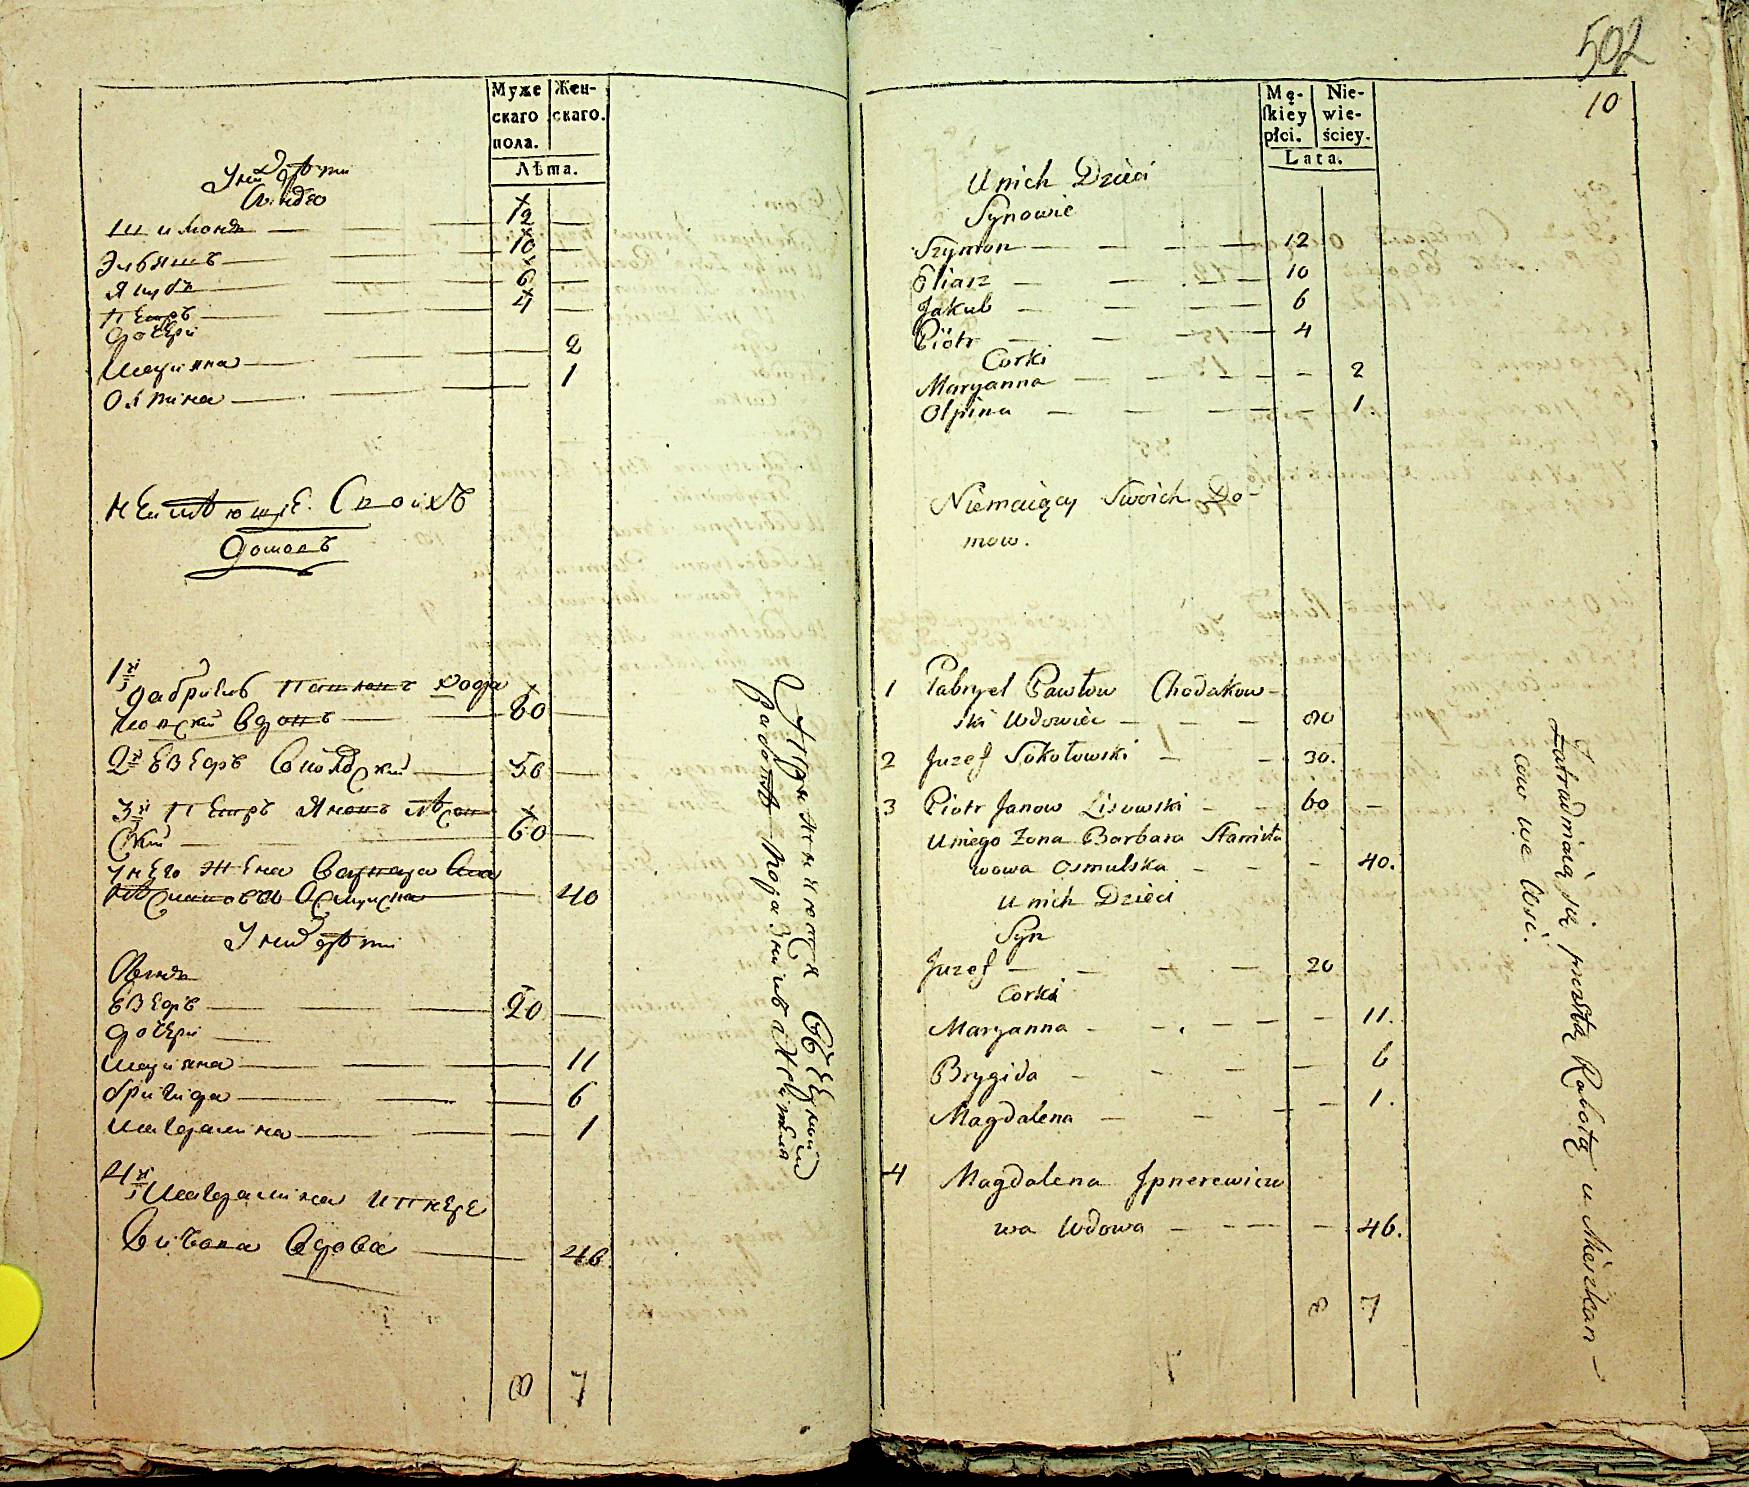 Муже
скаго
пола.
Жен-
скаго.
Лѣта.
У них дѣти
12
Шимонъ
10
Элѣяшъ
6
Якубъ
4
Петръ
дочери
2
Марияна
1
Олпина
Неимѣющіе Своихъ
Домовъ
1й Габриель Павловъ Хода
ковский Вдовецъ 80
2й Езефъ Соколовский 30
3й Петръ Яновъ Лисов
ский 60
У него жена Варвара Ста
ниславова Осмулска 40
У них дѣти
Сынъ
Езефъ 20
дочери
Марияна 11
Бригида 6
Магдалина 1
4й Магдалина Ипнере
вичова Вдова 46
8 7
Упражняются Обѣденной
работѣ
502
10
Mę-
ſkiey
płci.
Nie-
wie-
ściey.
Lata.
U nich Dzieci
Synowie
Szymon 12
Eliasz 10
Jakub 6
Piotr 4
Corki
Maryanna 2
Olpina 1
Niemaiący Swoich Do-
mow.
1 Gabryel Pawłow Chodakow-
ski Wdowiec 80
2 Juzef Sokołowski 30.
3 Piotr Janow Lisowski 60
U niego Zona Barbara Stanisła
wowa Osmulska 40.
U nich Dzieci
Syn
Juzef 20
Corki
Maryanna 11.
Brygida 6
Magdalena 1.
4 Magdalena Jpnerewiczo
wa Wdowa 46.
8 7
Zatrudniaią się prostą Robotą u Mieszkan-
cow we Wsi.